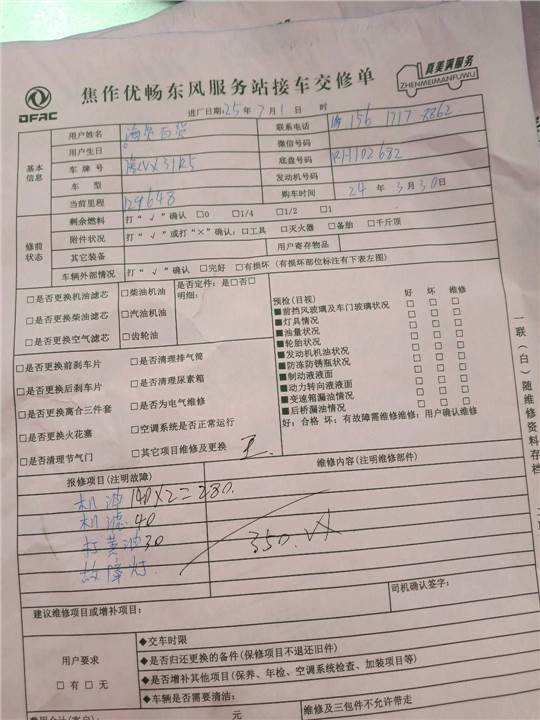 DFAC
焦作优畅东风服务站接车交修单
真美满服务
ZHENMEIMANFUWU
进厂日期:25年7月1日 时
基本信息
用户姓名
联系电话 156 1717
用户生日 微信号码
车牌号 底盘号码 RH102682
车型 发动机号码
当前里程 129648 购车时间 24年3月30日
修前状态
剩余燃料 打“√”确认 □0 □1/4 □1/2 □1
附件状况 打“√”或打“×”确认:□工具 □灭火器 □备胎 □千斤顶
其它装备 用户寄存物品
车辆外部情况 打“√”确认 □完好 □有损坏(有损坏部位标注有下表左图)
□是否更换机油滤芯 □柴油机油 是否定件:是□否□
明细:
□是否更换柴油滤芯 □汽油机油
□是否更换空气滤芯 □齿轮油
□是否更换前刹车片 □是否清理排气筒
□是否更换后刹车片 □是否清理尿素箱
□是否更换离合三件套 □是否为电气维修
□是否更换火花塞 □空调系统是否正常运行
□是否清理节气门 □其它项目维修及更换
预检(目视) 好 坏 维修
■前挡风玻璃及车门玻璃状况 □ □ □
■灯具情况 □ □ □
■油量状况 □ □ □
■轮胎状况 □ □ □
■发动机机油状况 □ □ □
■防冻防锈瓶状况 □ □ □
■制动液液面 □ □ □
■动力转向液液面 □ □ □
■变速箱漏油情况 □ □ □
■后桥漏油情况 □ □ □
好:合格 坏:有故障需维修维修:用户确认维修
报修项目(注明故障) 维修内容(注明维修部件)
机油140×2=280.
机滤40
打黄油30
故障灯.
350.
建议维修项目或增补项目: 司机确认签字:
用户要求
□有 □无
◆交车时限
◆是否归还更换的备件(保修项目不退还旧件)
◆是否增补其他项目(保养、年检、空调系统检查、加装项目等)
◆车辆是否需要清洁:
元 维修及三包件不允许带走
一联(白)随维修资料存档